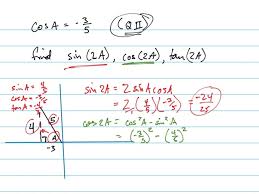 cos A = -3/5 (QII)
find sin(2A), cos(2A), tan(2A)
sin A = 4/5
cos A = -3/5
tan A = -4/3
4 5
A
-3
sin 2A = 2 sin A cos A
= 2 (4/5)(-3/5) = -24/25
cos 2A = cos²A - sin²A
= (-3/5)² - (4/5)²